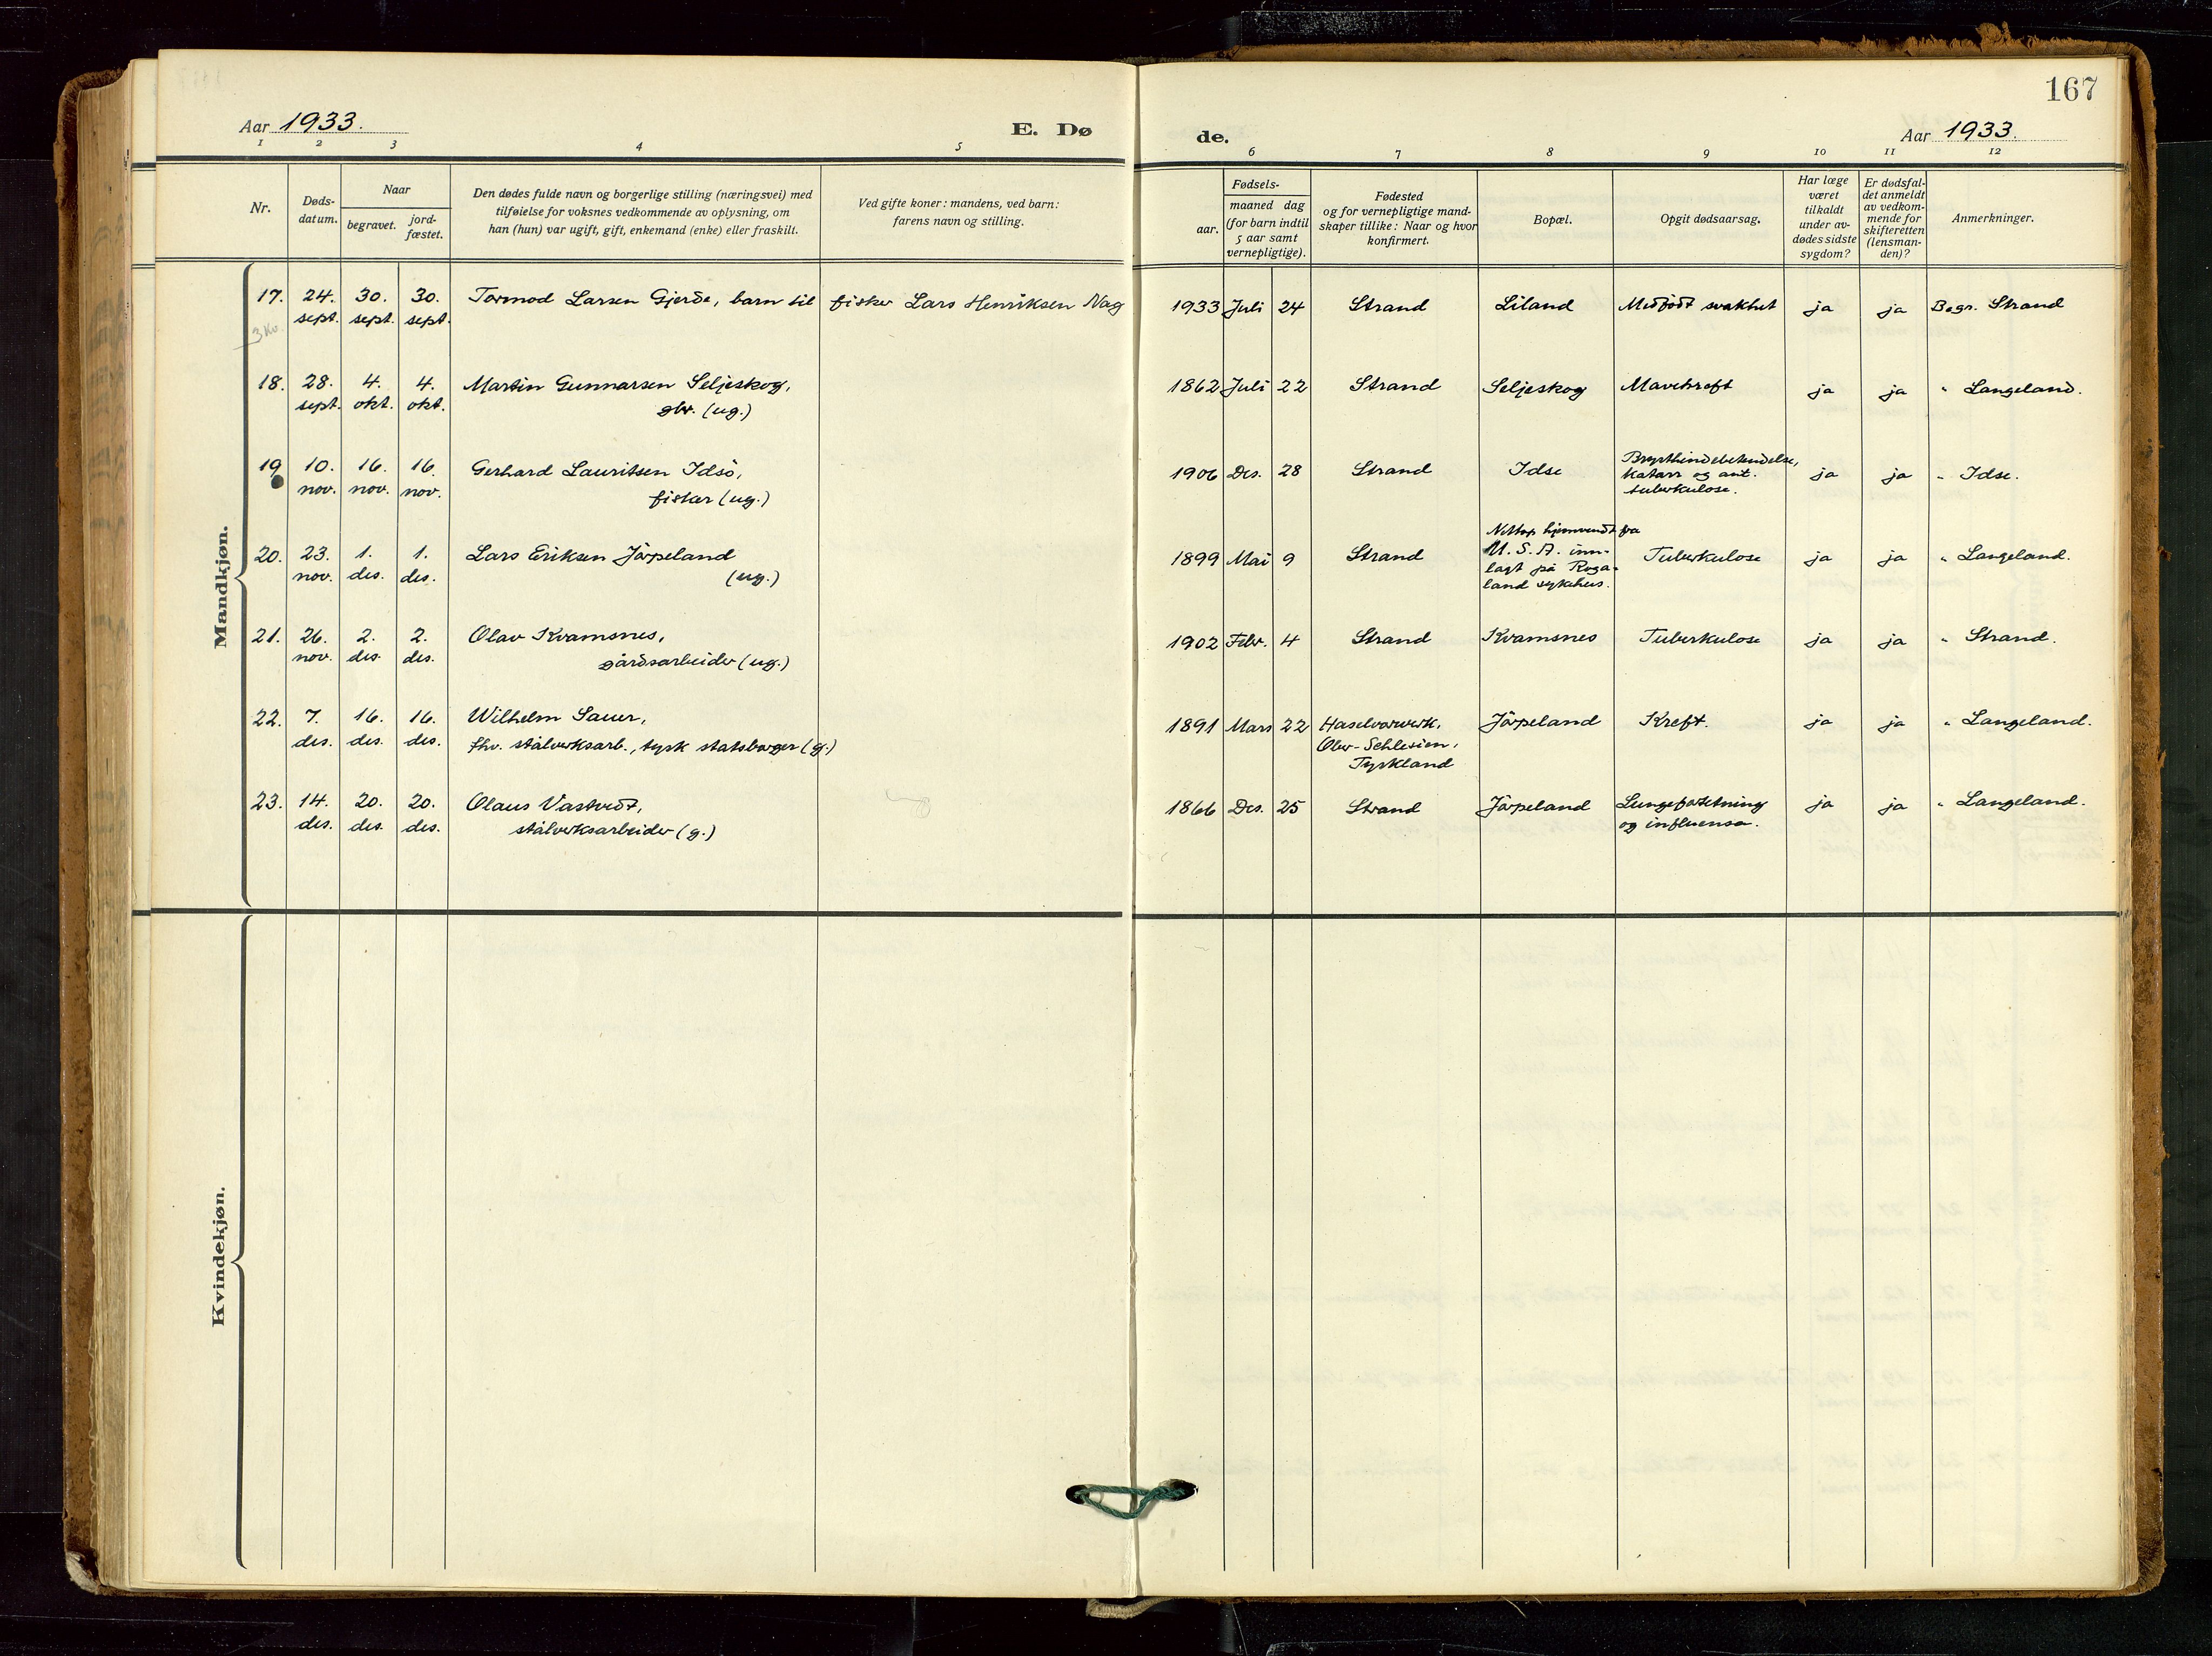 167
Aar 1933.
E. Dø
de.
Aar 1933.
1 2 3 4 5
6 7 8 9 10 11 12
Nr.
Døds-
datum.
Naar
begravet.
jord-
fæstet.
Den dødes fulde navn og borgerlige stilling (næringsvei) med
tilføielse for voksnes vedkommende av oplysning, om
han (hun) var ugift, gift, enkemand (enke) eller fraskilt.
Ved gifte koner: mandens, ved barn:
farens navn og stilling.
Fødsels-
aar.
maaned dag
(for barn indtil
5 aar samt
vernepligtige).
Fødested
og for vernepligtige mand-
skaper tillike: Naar og hvor
konfirmert.
Bopæl.
Opgit dødsaarsag.
Har læge
været
tilkaldt
under av-
dødes sidste
sygdom?
Er dødsfal-
det anmeldt
av vedkom-
mende for
skifteretten
(lensman-
den)?
Anmerkninger.
Mandkjøn.
17. 24. 30. 30. Tormod Larsen Gjerde, barn til fisker Lars Henriksen Nag 1933 Juli 24 Strand Liland Medfødt svakhet ja ja Begr. Strand
sept. sept. sept.
3 Kv.
18. 28. 4. 4. Martin Gunnarsen Seljeskog, 1862 Juli 22 Strand Seljeskog Mavekreft ja ja " Langeland.
sept. okt. okt. gbr. (ug.)
19 10. 16. 16. Gerhard Lauritsen Idsö, 1906 Des. 28 Strand Idse Brysthindebetendelse, ja ja " Idse.
nov. nov. nov. fisker (ug.) katarr og ant.
tuberkulose.
Nettop hjemvendt fra
20. 23. 1. 1. Lars Eriksen Jörpeland 1899 Mai 9 Strand U.S.A. inn- Tuberkulose ja ja " Langeland.
nov. des. des. (ug.) lagt på Roga-
land sykehus.
21. 26. 2. 2. Olav Kvamsnes, 1902 Febr. 4 Strand Kvamsnes Tuberkulose ja ja " Strand.
nov. des. des. gårdsarbeider (ug.)
22. 7. 16. 16. Wilhelm Sauer, 1891 Mars 22 Haselvorwerk, Jörpeland Kreft. ja ja " Langeland.
des. des. des. fhv. stålverksarb., tysk statsborger (g.) Ober-Schlesien,
Tyskland
23. 14. 20. 20. Olaus Vastvedt, 1866 Des. 25 Strand Jörpeland Lungefortetning ja ja " Langeland.
des. des. des. stålverksarbeider (g.) og influensa.
Kvindekjøn.